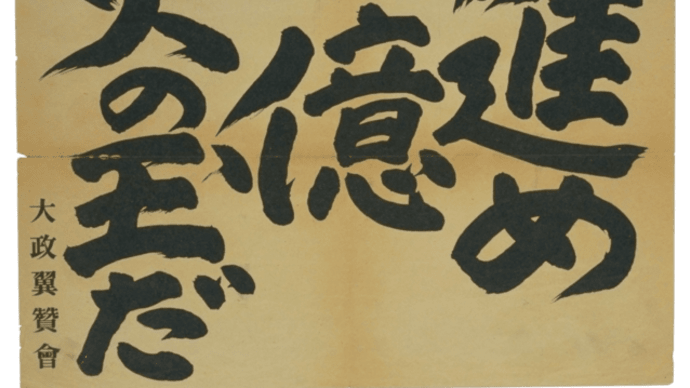 進め
億
火の玉だ
大政翼贊會